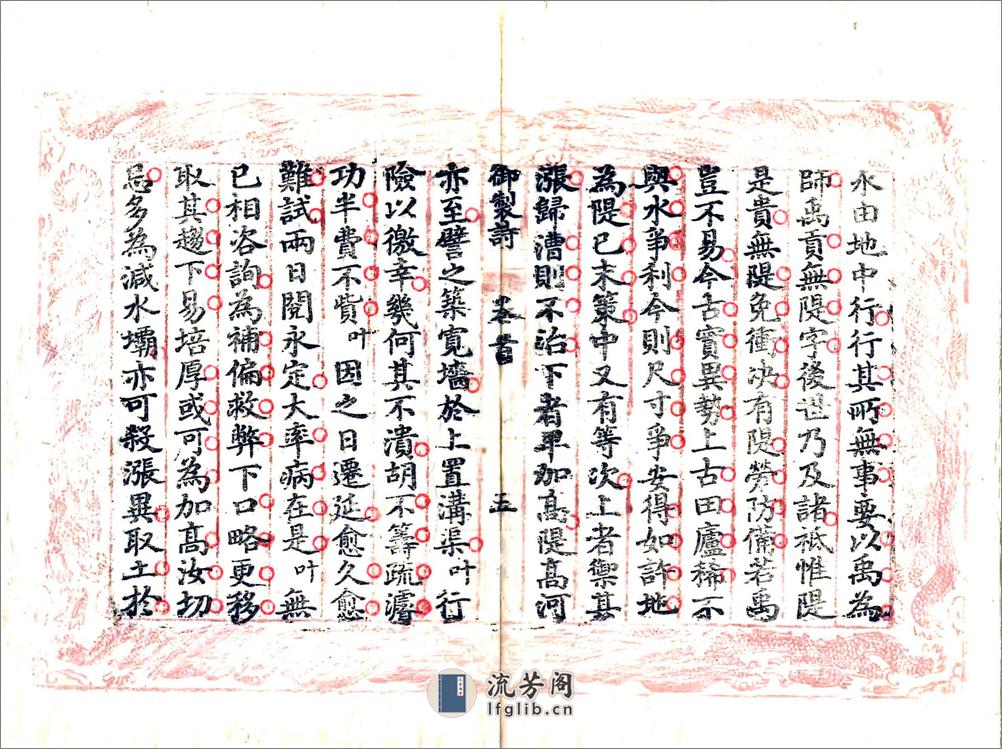 水由地中行行其所無事要以禹為
師禹貢無隄字後世乃及諸祗惟隄
是貴無隄免衝决有隄勞防備若禹
豈不易今古實異勢上古田廬稀不
與水爭利今則尺寸爭安得如許地
為隄已末策中又有等次上者禦其
漲歸漕則不治下者卑加高隄高河
御製詩 卷首 五
亦至譬之築寬墻於上置溝渠叶行
險以徼幸幾何其不潰胡不籌疏濬
功半費不貲叶因之日遷延愈久愈
難試兩日閱永定大率病在是叶無
已相咨詢為補偏救弊下口略更移
取其趨下易培厚或可為加高汝切
忌多為減水壩亦可殺漲異取土於
流芳阁
lfglib.cn